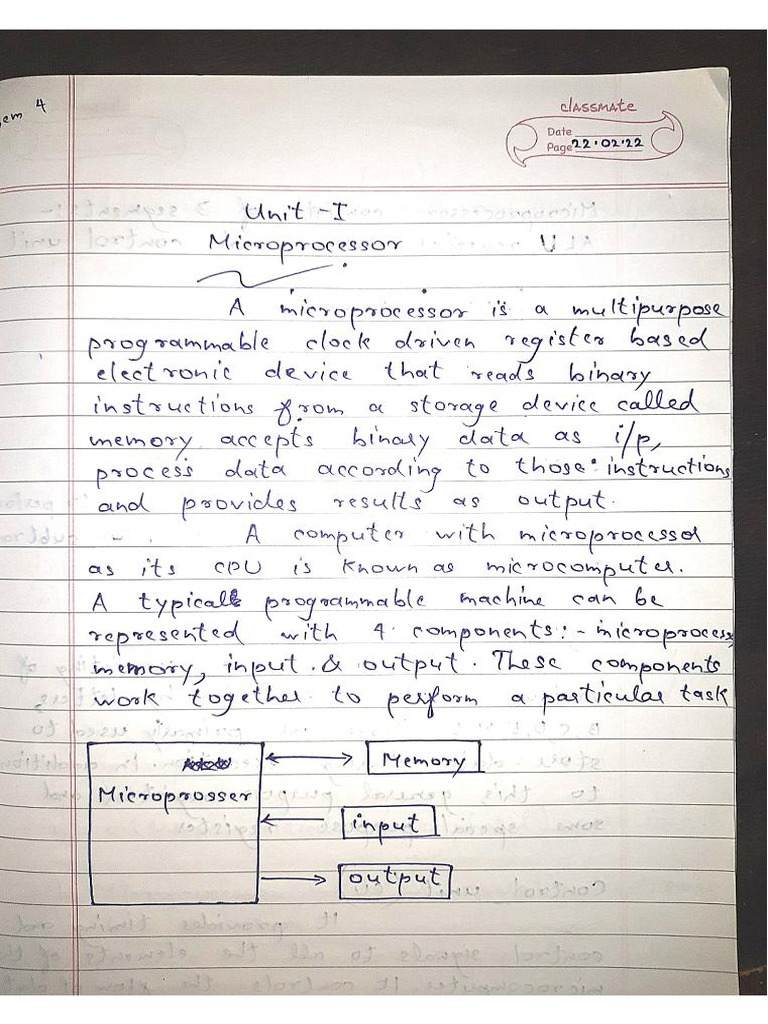 sem 4
classmate
Date
Page 22.02.22
Unit-I
Microprocessor
A microprocessor is a multipurpose
programmable clock driven register based
electronic device that reads binary
instructions from a storage device called
memory accepts binary data as i/p,
process data according to those instructions
and provides results as output.
A computer with microprocessor
as its CPU is known as microcomputer.
A typical programmable machine can be
represented with 4 components:- microprocess
memory, input & output. These components
work together to perform a particular task
Memory
Microprosser
input
output